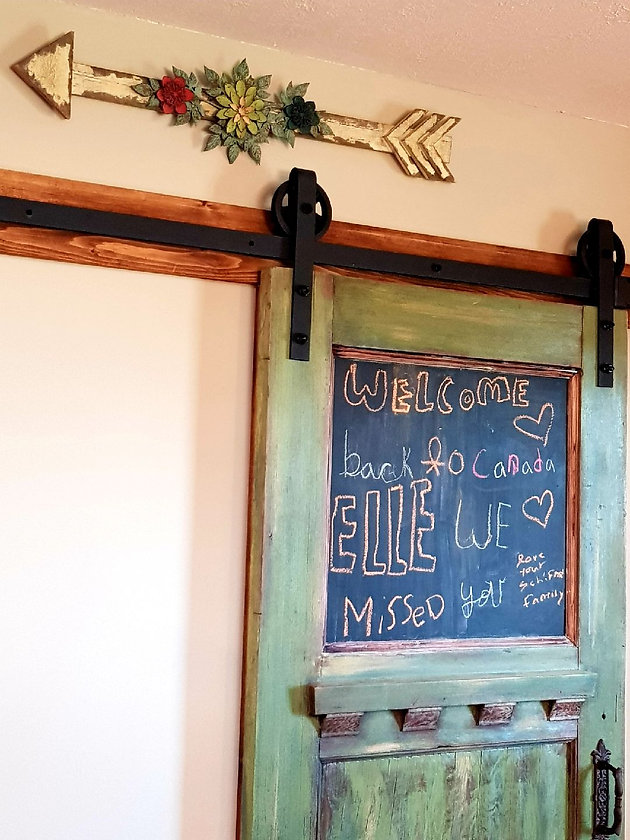 WELCOME
back to Canada
ELLE WE
MISSED YOU
Love
your
family